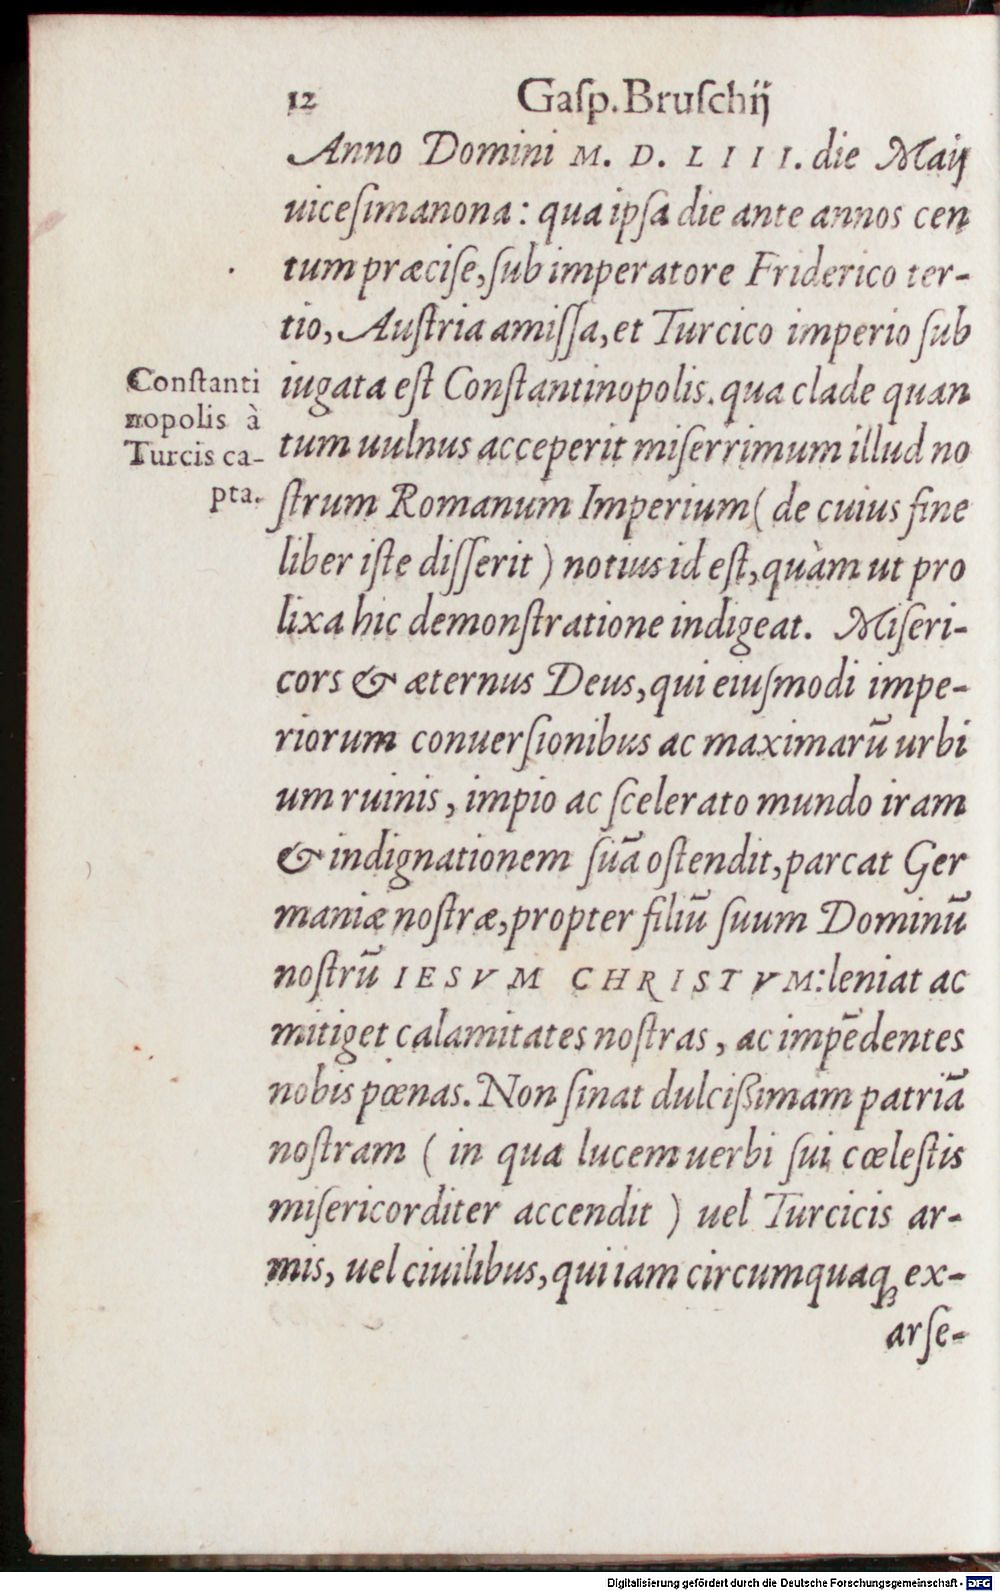 12 Gaſp. Bruſchij
Anno Domini M. D. L I I I. die Maij
uiceſimanona: qua ipſa die ante annos cen
tum præciſe, ſub imperatore Friderico ter-
tio, Auſtria amiſſa, et Turcico imperio ſub
iugata eſt Conſtantinopolis. qua clade quan
tum uulnus acceperit miſerrimum illud no
ſtrum Romanum Imperium ( de cuius fine
liber iſte diſſerit ) notius id eſt, quàm ut pro
lixa hic demonſtratione indigeat. Miſeri-
cors & æternus Deus, qui eiuſmodi impe-
riorum conuerſionibus ac maximarū urbi
um ruinis, impio ac ſcelerato mundo iram
& indignationem ſuā oſtendit, parcat Ger
maniæ noſtræ, propter filiū ſuum Dominū
noſtrū IESVM CHRISTVM: leniat ac
mitiget calamitates noſtras, ac impēdentes
nobis pœnas. Non ſinat dulcißimam patriā
noſtram ( in qua lucem uerbi ſui cœleſtis
miſericorditer accendit ) uel Turcicis ar-
mis, uel ciuilibus, qui iam circumquaqꝫ ex-
arſe-
Conſtanti
nopolis à
Turcis ca-
pta.
Digitalisierung gefördert durch die Deutsche Forschungsgemeinschaft - DFG